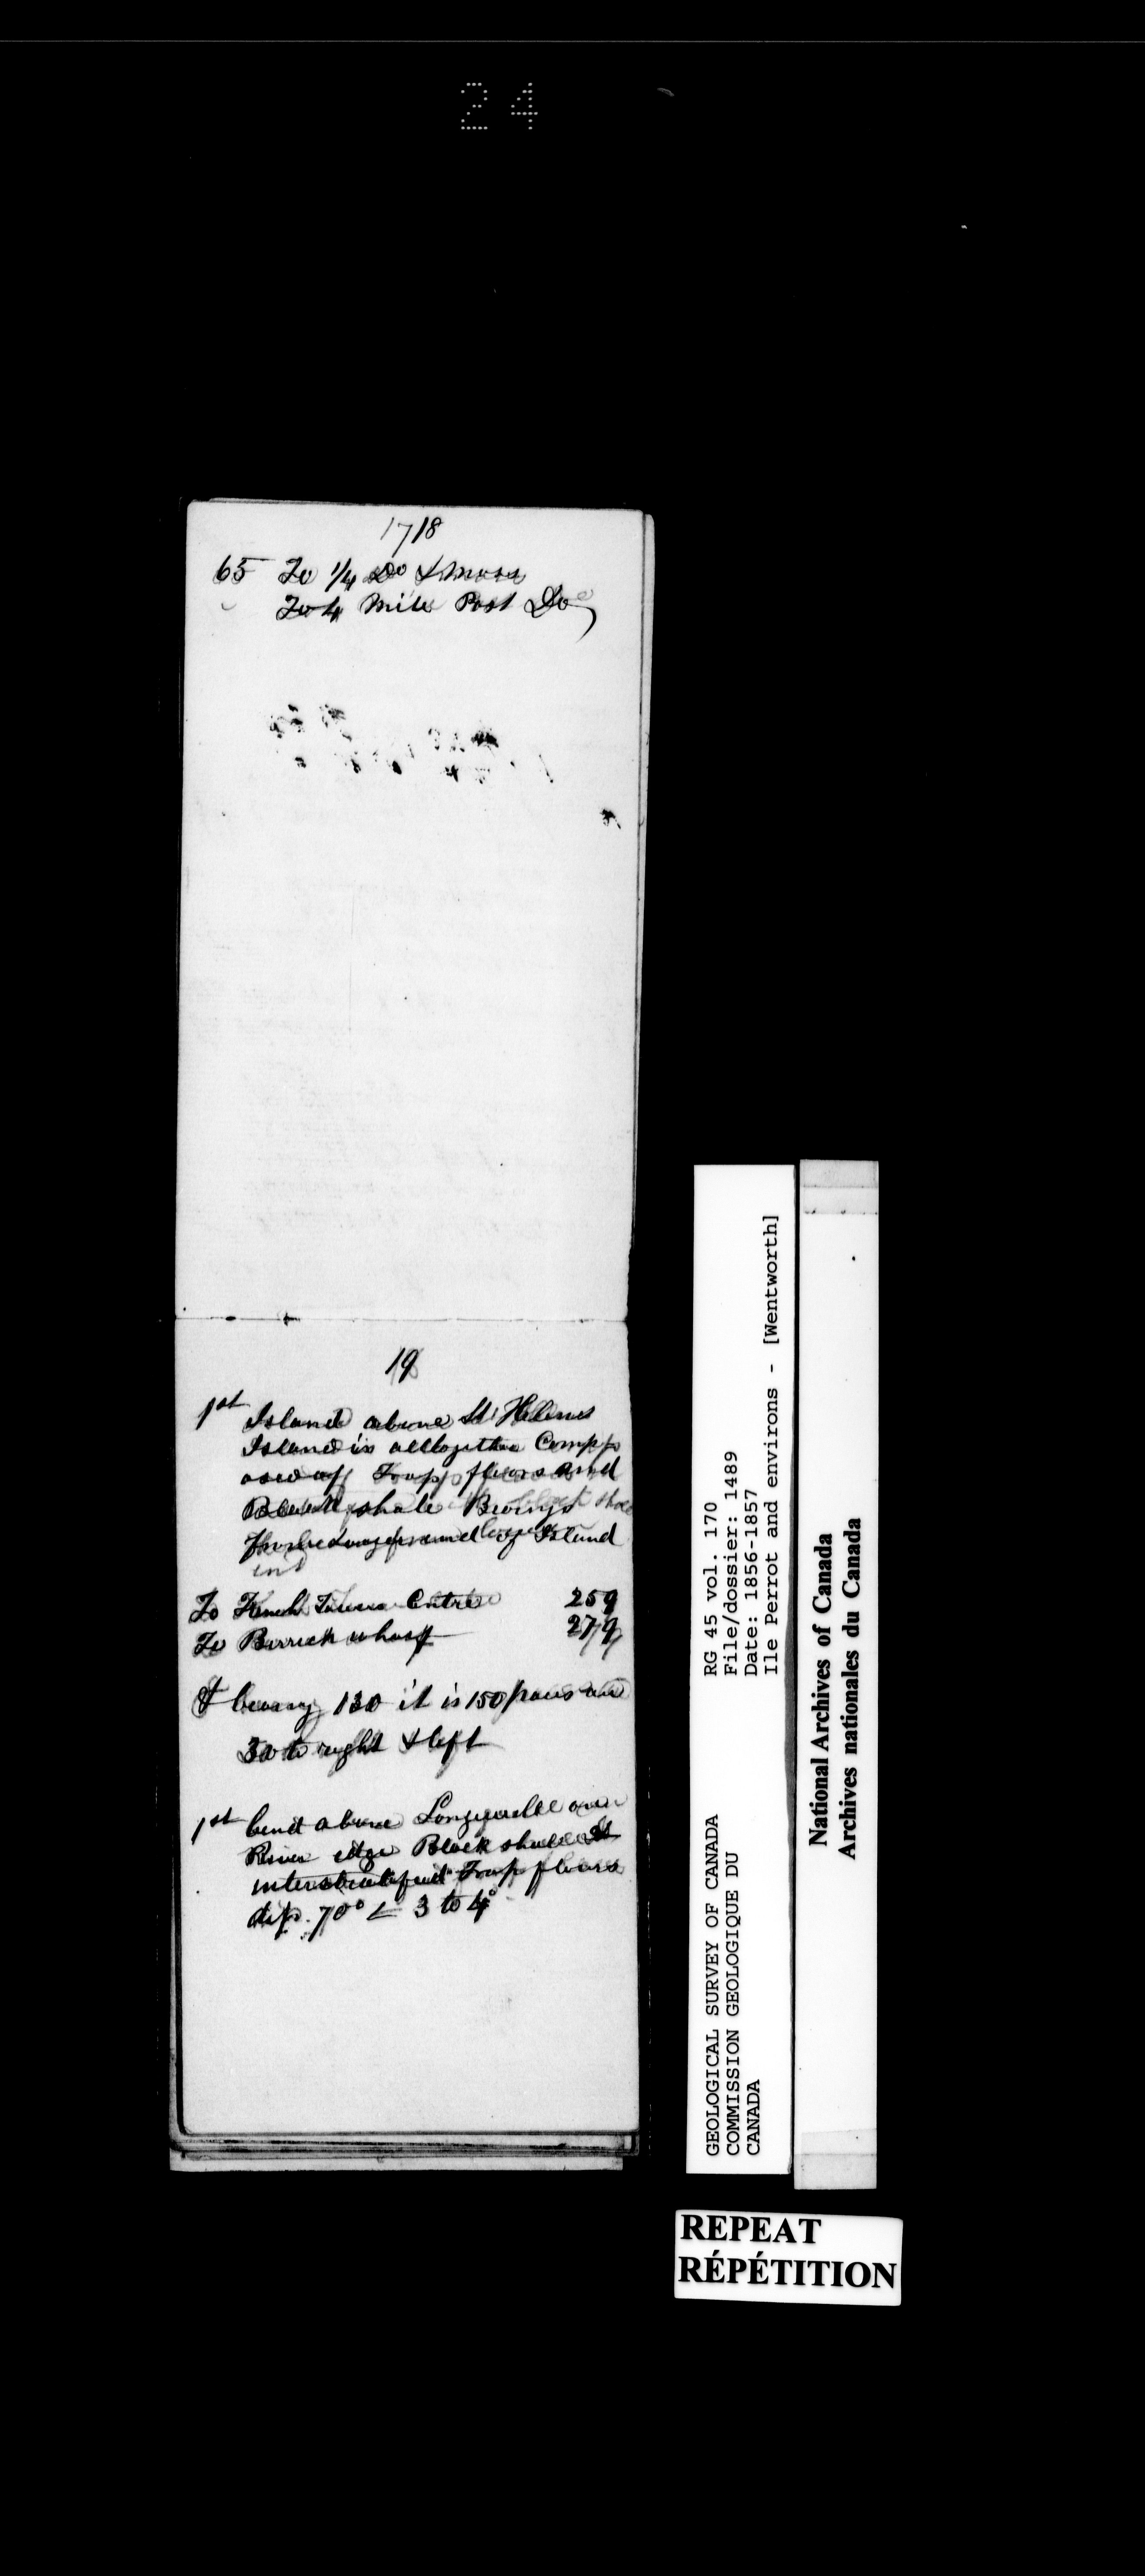 24
1718
65 To 1/4 Do & moss
To 4 Mile Post Do
19
1st Island above St Helens
Island is alltogether Comp
osed of Trap floors and
Black shale
Island
To French Tower Centre 259
To Barrick wharf 279
& bearing 130 it is 150 paces
30 to right & left
1st bend above Longueille on
River edge Black shale
interstratified Trap floors
dip 70° ∠ 3 to 4°
GEOLOGICAL SURVEY OF CANADA
COMMISSION GEOLOGIQUE DU
CANADA
RG 45 vol. 170
File/dossier: 1489
Date: 1856-1857
Ile Perrot and environs - [Wentworth]
National Archives of Canada
Archives nationales du Canada
REPEAT
RÉPÉTITION